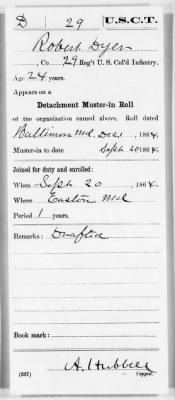 D 29 U.S.C.T.
Robert Dyer
, Co. 29 Reg't U. S. Col'd Infantry.
Age 24 years.
Appears on a
Detachment Muster-in Roll
of the organization named above. Roll dated
Baltimore Md, Dec 1, 1864.
Muster-in to date Sept 20 1864.
Joined for duty and enrolled:
When Sept 20, 1864.
Where Easton Md
Period 1 years.
Remarks: Drafted
Book mark:
A. Hubbell
(337) Copyist.